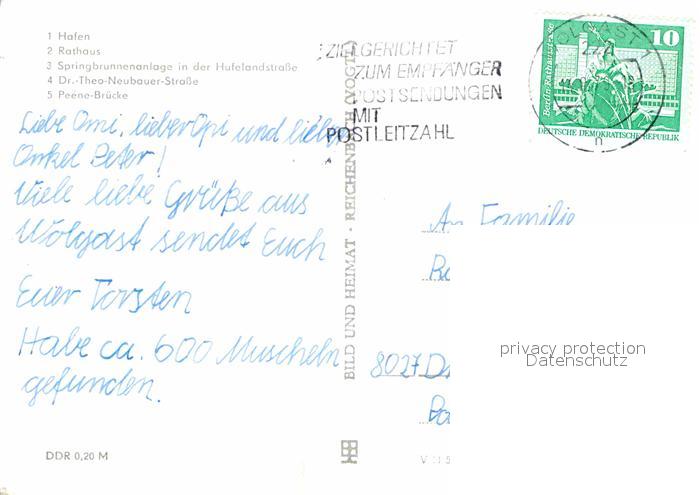 1 Hafen
2 Rathaus
3 Springbrunnenanlage in der Hufelandstraße
4 Dr.-Theo-Neubauer-Straße
5 Peene-Brücke
Liebe Omi, lieber Opi und lieber
Onkel Peter!
Viele liebe Grüße aus
Wolgast sendet Euch
Euer Torsten
Habe ca. 600 Muscheln
gefunden.
DDR 0,20 M
BILD UND HEIMAT · REICHENBACH (VOGTL)
ZIELGERICHTET
ZUM EMPFÄNGER
POSTSENDUNGEN
MIT
POSTLEITZAHL
WOLGAST
10
Berlin, Rathausstraße
DEUTSCHE DEMOKRATISCHE REPUBLIK
n
An Familie
8027 D
privacy protection
Datenschutz